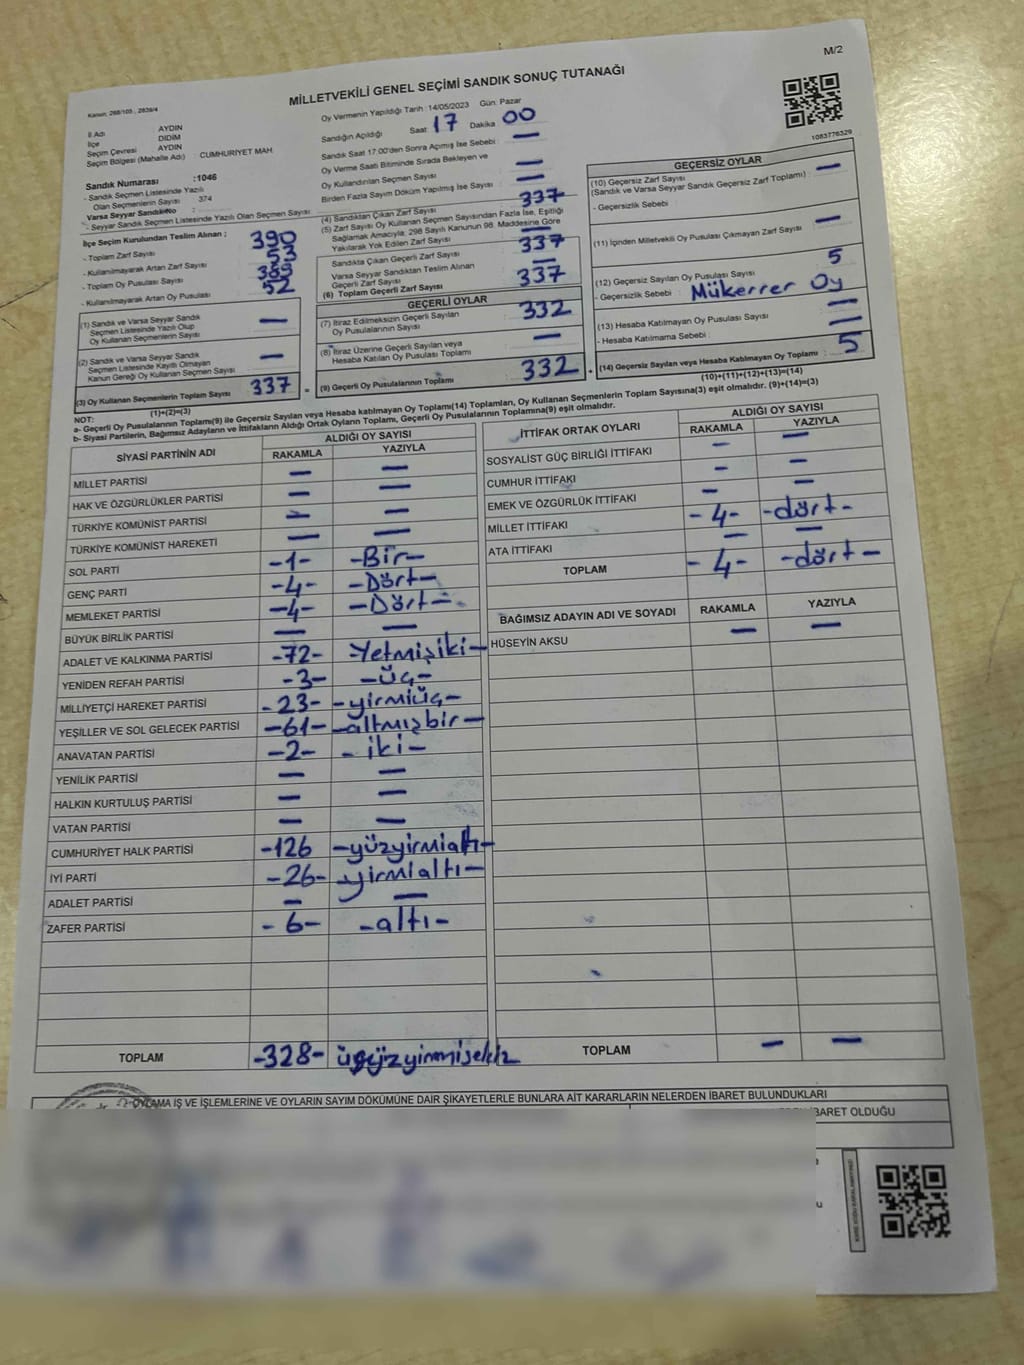 M/2
MİLLETVEKİLİ GENEL SEÇİMİ SANDIK SONUÇ TUTANAĞI
1083776329
İl Adı AYDIN
İlçe DİDİM
Seçim Çevresi AYDIN
Seçim Bölgesi (Mahalle Adı) CUMHURİYET MAH.
Sandık Numarası :1046
- Sandık Seçmen Listesinde Yazılı
Olan Seçmenlerin Sayısı 374
Varsa Seyyar SandıkNo :
- Seyyar Sandık Seçmen Listesinde Yazılı Olan Seçmen Sayısı
İlçe Seçim Kurulundan Teslim Alınan :
- Toplam Zarf Sayısı 390
- Kullanılmayarak Artan Zarf Sayısı 53
- Toplam Oy Pusulası Sayısı 389
- Kullanılmayarak Artan Oy Pusulası 52
(1) Sandık ve Varsa Seyyar Sandık
Seçmen Listesinde Yazılı Olup
Oy Kullanan Seçmenlerin Sayısı —
(2) Sandık ve Varsa Seyyar Sandık
Seçmen Listesinde Kayıtlı Olmayan
Kanun Gereği Oy Kullanan Seçmen Sayısı —
(3) Oy Kullanan Seçmenlerin Toplam Sayısı 337
(1)+(2)=(3)
Oy Vermenin Yapıldığı Tarih : 14/05/2023 Gün: Pazar
Sandığın Açıldığı Saat 17 Dakika 00
Sandık Saat 17:00'den Sonra Açımış İse Sebebi : —
Oy Verme Saati Bitiminde Sırada Bekleyen ve
Oy Kullandırılan Seçmen Sayısı —
Birden Fazla Sayım Döküm Yapılmış İse Sayısı —
(4) Sandıktan Çıkan Zarf Sayısı 337
(5) Zarf Sayısı Oy Kullanan Seçmen Sayısından Fazla İse, Eşitliği
Sağlamak Amacıyla, 298 Sayılı Kanunun 98. Maddesine Göre
Yakılarak Yok Edilen Zarf Sayısı —
Sandıkta Çıkan Geçerli Zarf Sayısı 337
Varsa Seyyar Sandıktan Teslim Alınan
Geçerli Zarf Sayısı —
(6) Toplam Geçerli Zarf Sayısı 337
GEÇERLİ OYLAR
(7) İtiraz Edilmeksizin Geçerli Sayılan
Oy Pusulalarının Sayısı 332
(8) İtiraz Üzerine Geçerli Sayılan veya
Hesaba Katılan Oy Pusulası Toplamı —
(9) Geçerli Oy Pusulalarının Toplamı 332
GEÇERSİZ OYLAR
(10) Geçersiz Zarf Sayısı
(Sandık ve Varsa Seyyar Sandık Geçersiz Zarf Toplamı) : —
- Geçersizlik Sebebi :
(11) İçinden Milletvekili Oy Pusulası Çıkmayan Zarf Sayısı —
(12) Geçersiz Sayılan Oy Pusulası Sayısı 5
- Geçersizlik Sebebi : Mükerrer Oy
(13) Hesaba Katılmayan Oy Pusulası Sayısı —
- Hesaba Katılmama Sebebi : —
(14) Geçersiz Sayılan veya Hesaba Katılmayan Oy Toplamı 5
(10)+(11)+(12)+(13)=(14)
NOT:
a- Geçerli Oy Pusulalarının Toplamı(9) ile Geçersiz Sayılan veya Hesaba katılmayan Oy Toplamı(14) Toplamları, Oy Kullanan Seçmenlerin Toplam Sayısına(3) eşit olmalıdır. (9)+(14)=(3)
b- Siyasi Partilerin, Bağımsız Adayların ve İttifakların Aldığı Ortak Oyların Toplamı, Geçerli Oy Pusulalarının Toplamına(9) eşit olmalıdır.
SİYASİ PARTİNİN ADI ALDIĞI OY SAYISI
RAKAMLA YAZIYLA
MİLLET PARTİSİ — —
HAK VE ÖZGÜRLÜKLER PARTİSİ — —
TÜRKİYE KOMÜNİST PARTİSİ — —
TÜRKİYE KOMÜNİST HAREKETİ — —
SOL PARTİ -1- -Bir-
GENÇ PARTİ -4- -Dört-
MEMLEKET PARTİSİ -4- -Dört-
BÜYÜK BİRLİK PARTİSİ — —
ADALET VE KALKINMA PARTİSİ -72- Yetmişiki-
YENİDEN REFAH PARTİSİ -3- -üç-
MİLLİYETÇİ HAREKET PARTİSİ -23- -yirmiüç-
YEŞİLLER VE SOL GELECEK PARTİSİ -61- -altmışbir-
ANAVATAN PARTİSİ -2- - iki-
YENİLİK PARTİSİ — —
HALKIN KURTULUŞ PARTİSİ — —
VATAN PARTİSİ — —
CUMHURİYET HALK PARTİSİ -126 -yüzyirmialtı-
İYİ PARTİ -26- -yirmialtı-
ADALET PARTİSİ — —
ZAFER PARTİSİ -6- -altı-
TOPLAM -328- üçyüzyirmisekiz
İTTİFAK ORTAK OYLARI ALDIĞI OY SAYISI
RAKAMLA YAZIYLA
SOSYALİST GÜÇ BİRLİĞİ İTTİFAKI — —
CUMHUR İTTİFAKI — —
EMEK VE ÖZGÜRLÜK İTTİFAKI — —
MİLLET İTTİFAKI -4- -dört-
ATA İTTİFAKI — —
TOPLAM -4- -dört-
BAĞIMSIZ ADAYIN ADI VE SOYADI RAKAMLA YAZIYLA
HÜSEYİN AKSU — —
TOPLAM — —
OYLAMA İŞ VE İŞLEMLERİNE VE OYLARIN SAYIM DÖKÜMÜNE DAİR ŞİKAYETLERLE BUNLARA AİT KARARLARIN NELERDEN İBARET BULUNDUKLARI
İBARET OLDUĞU